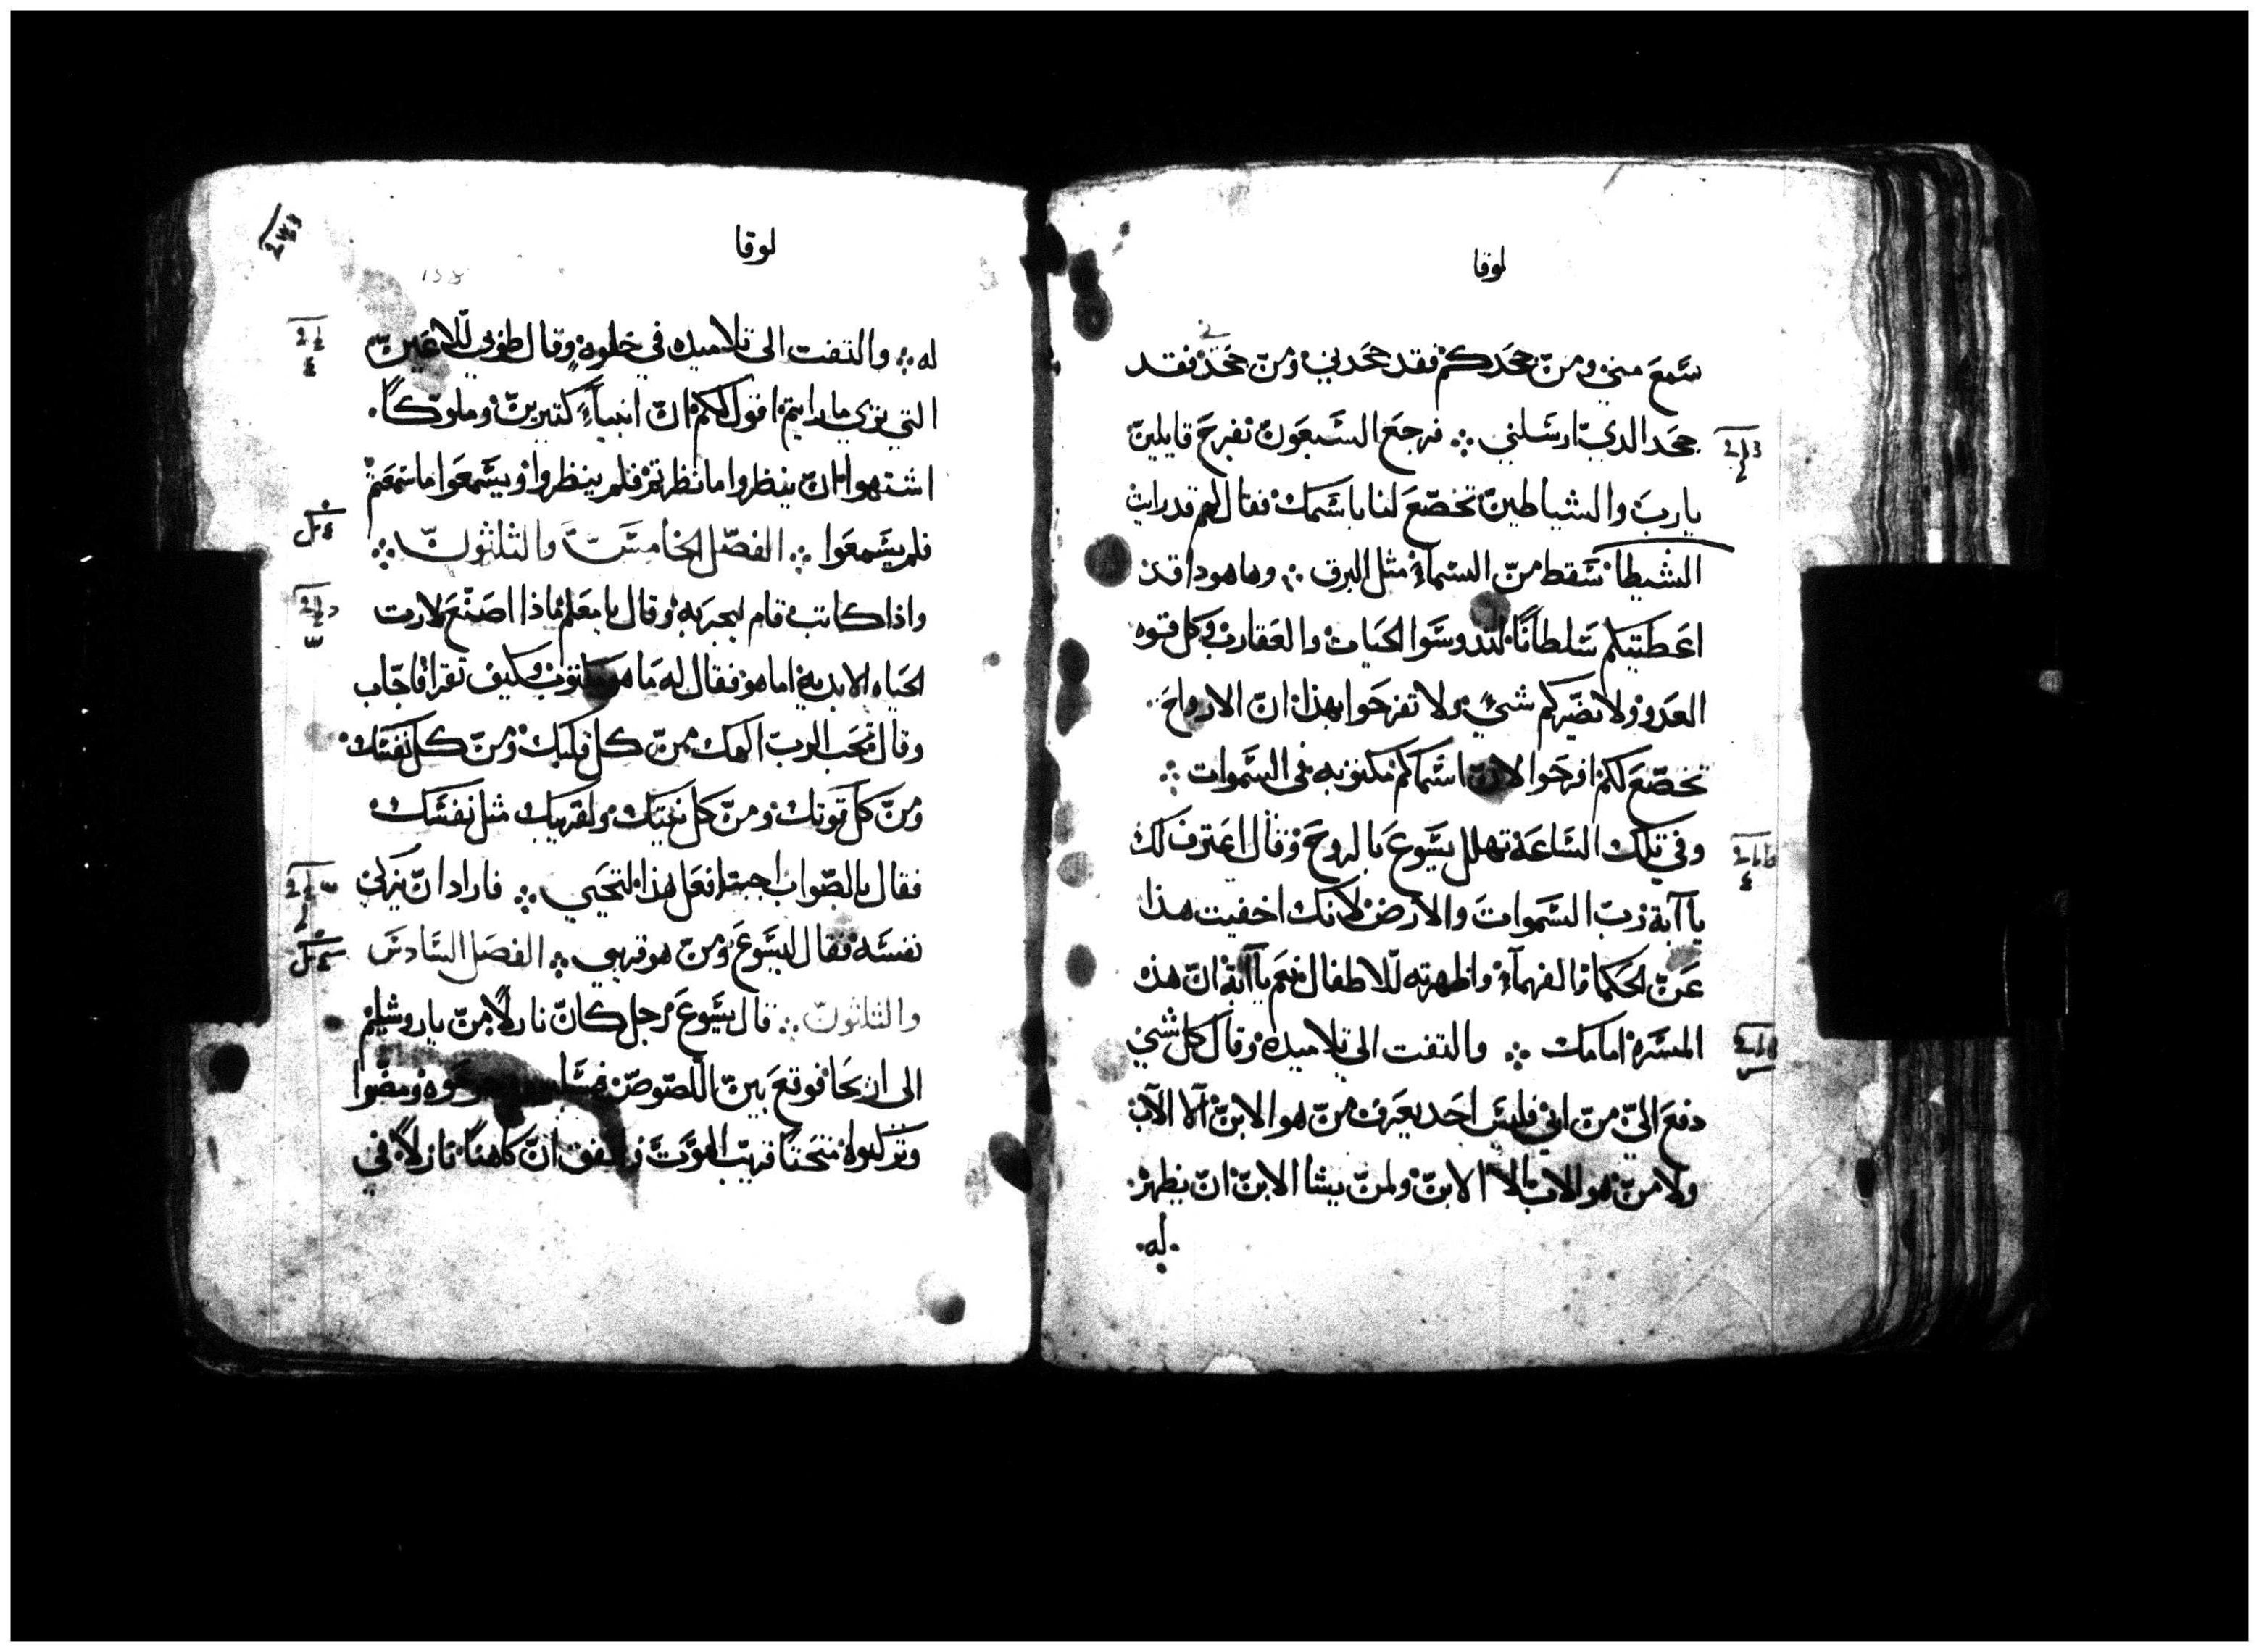 لوقا
سَّمعَ مني ومنّ جحدكم فقد جحدني ومنّ جحدني فقد
جحد الدي ارسَلني ܀ فرجع السَّبعَونّ بفرحَ قايلينّ
يا ربَ والشياطينّ تخضّعَ لنا باسَمك فقال لهم قد رايت
الشيطانّ سَقط منّ السَماء مثل البرق ܀ وها هودا قد
اعَطيتكم سَلطانًا لتدوسَوا الحَيات والعَقارب وكل قوه
العَدو ولا يضّركم شيٌ ولا تفرحَوا بهذا انّ الارواحَ
تخضّعَ لكم افرحَوا لانّ اسَماكم مكتوبه في السَموات ܀
وفي تلك السَاعَة تهلل يسَّوعَ بالروحَ وقال اعَترف لك
يا آبة ربّ السَموات والارض لانك اخفيت هذا
عَنّ الحَكما والفهمآء واظهرته للاطفال نعَم يا آبة انّ هذه
المسَرة امامك ܀ والتفت الى تلاميده وقال كل شي
دفعَ اليّ منّ ابي فليسَ احَد يعَرف منّ هو الابنّ الا الآب
ولا منّ هو الاب الا الابنّ ولمنّ يشا الابنّ انّ يظهر
له
لوقا
138
له ܀ والتفت الى تلاميده في خلوة وقال طوبي للاعَينّ
التي تري ما رايتم اقول لكم انّ انبيآءً كتيرينّ وملوكاً
اشتهوا انّ ينظروا ما نظرتم فلم ينظروا ويسَّمعَوا ما سَمعَتم
فلم يسَّمعَوا ܀ الفصّل الخامسَّ والثلثونّ ܀
واذا كاتب قام ليجربه وقال يا معَلم ماذا اصنَعَ لارت
الحَياه الابديه اما هو فقال له ما هو مكتوب وكيف تقرا فاجاب
وقال تحَب الربّ الهك منّ كل قلبك ومنّ كل نفسَك
ومنّ كل قوتك ومنّ كل نيتك ولقريبك مثل نفسَك
فقال بالصّواب اجبت افعَل هذا لتحَيي ܀ فاراد انّ يزكي
نفسَه فقال ليسَّوعَ ومنّ هو قريبي ܀ الفصَل السَّادسَ
والثلثونّ ܀ قال يسَّوعَ رجل كانّ نازلاً منّ ياروشليم
الى اريحَا فوقعَ بينّ اللصّوصّ ومضّوا
وتركوه مثخنًا قريبّ الموَت واتفق انّ كاهنًا نازلاً في